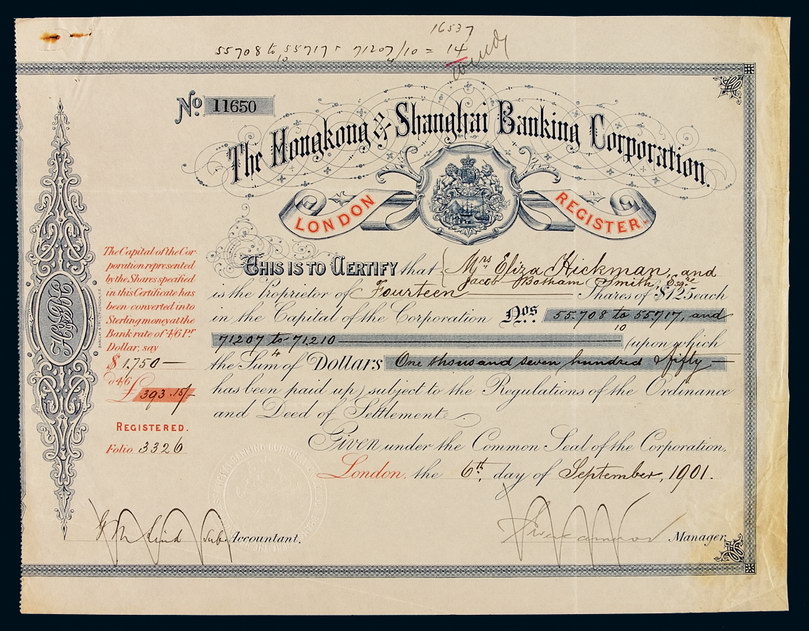 16537
55708 to 55717 = 71207/10 = 14
10 4
No. 11650
The Hongkong & Shanghai Banking Corporation.
LONDON REGISTER.
THIS IS TO CERTIFY that Mrs Eliza Hickman, and
Jacob Botham Smith, Esqre
is the Proprietor of Fourteen Shares of $125 each
in the Capital of the Corporation Nos 55708 to 55717, and
10
71207 to 71210 (upon which
4
the Sum of Dollars One thousand seven hundred & fifty
has been paid up) subject to the Regulations of the Ordinance
and Deed of Settlement.
Given under the Common Seal of the Corporation.
London, the 6th day of September, 1901.
Sub Accountant.
Manager.
The Capital of the Cor
poration represented
by the Shares specified
in this Certificate has
been converted into
Sterling money at the
Bank rate of 4/6 Pr.
Dollar, say
$ 1,750
@ 4/6
£ 393.15/-
REGISTERED.
Folio 3326